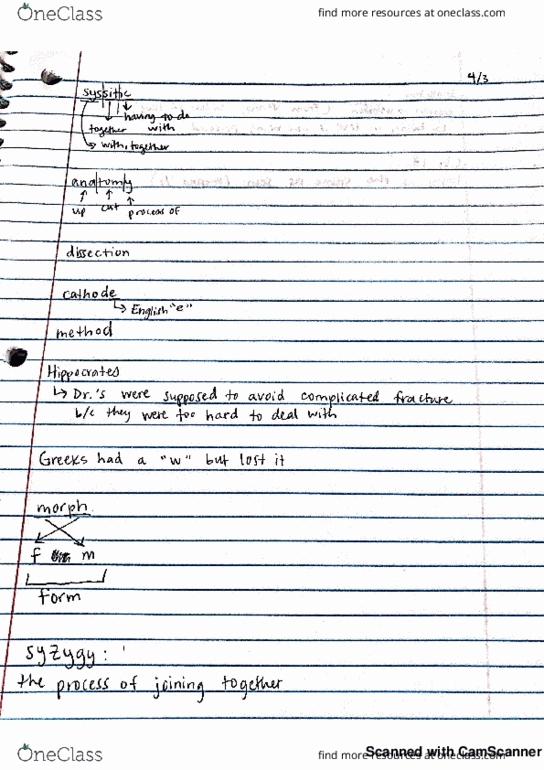 OneClass
find more resources at oneclass.com
4/3
syssitic
having to do
together with
with, together
anatomy
up cut process of
dissection
cathode
English "e"
method
Hippocrates
Dr.'s were supposed to avoid complicated fracture
b/c they were too hard to deal with
Greeks had a "w" but lost it
morph
f m
form
syzygy:
the process of joining together
OneClass
find more resources at oneclass.com
Scanned with CamScanner